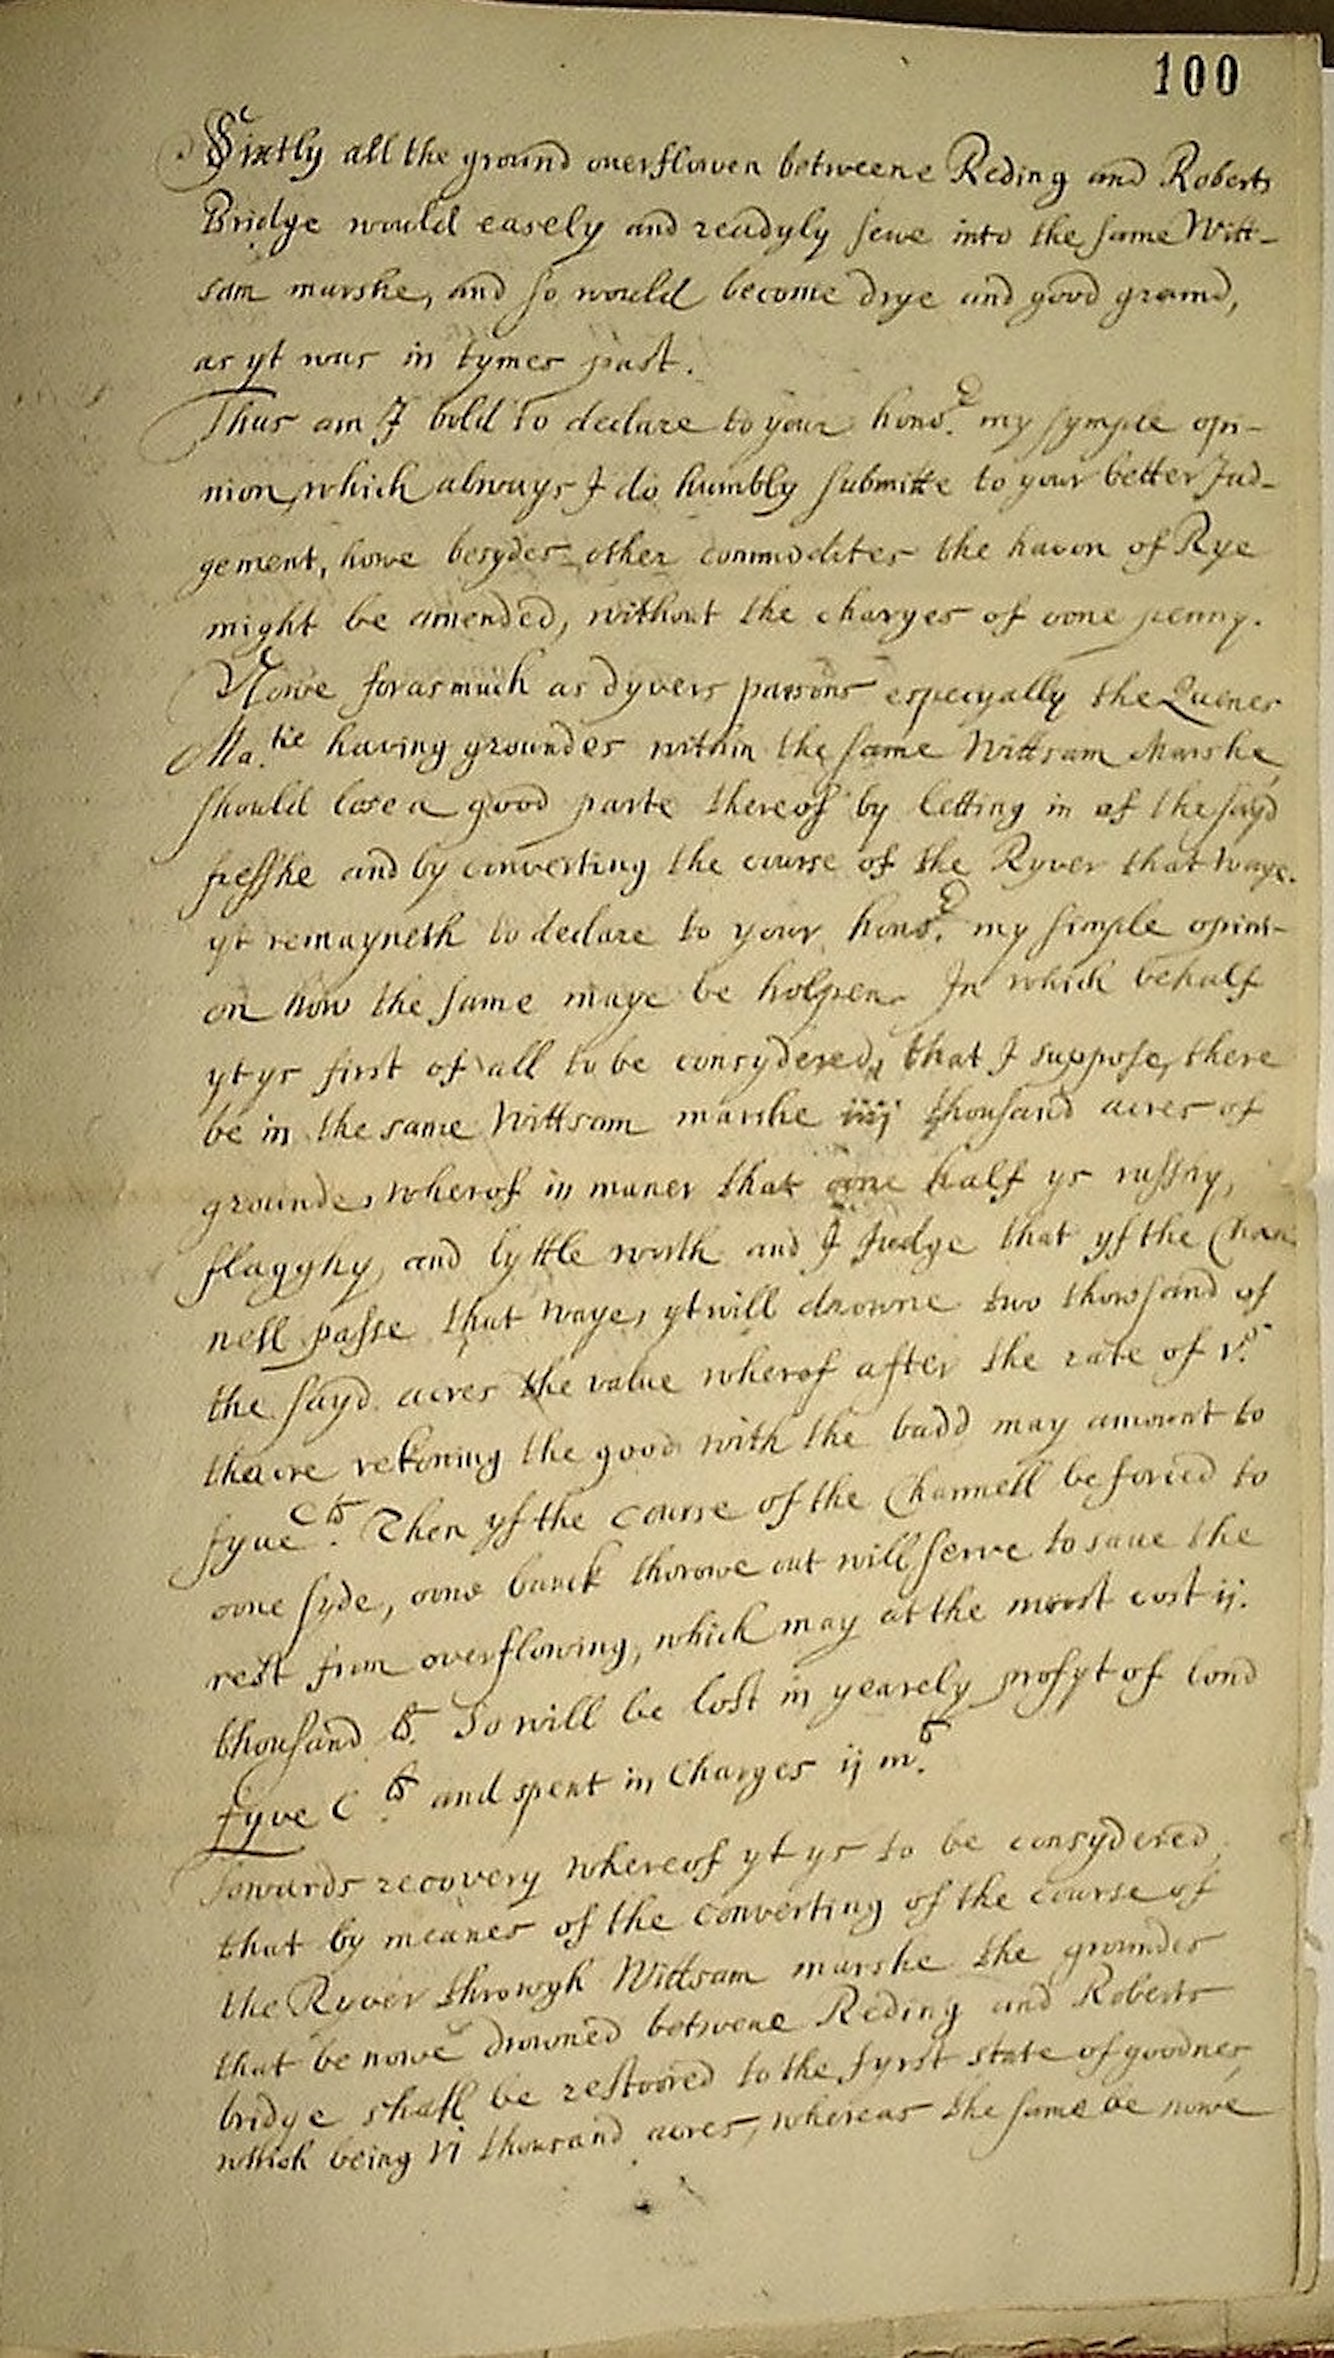 100
Sixtly all the ground overflowen betweene Reding and Roberts
Bridge would easely and readyly sewe into the same Witt-
sam marshe, and so would become drye and good ground,
as yt was in tymes past.
Thus am I bold to declare to your hono.r my symple opi-
nion, which always I do humbly submitte to your better Jud-
gement, howe besydes other commodites the haven of Rye
might be amended, without the charges of oone penny.
Nowe forasmuch as dyvers parsons especyally the Quenes
Ma.tie having groundes within the same Wittsam Marshe
should lose a good parte thereof by letting in of the sayd
fresshe and by converting the course of the Ryver that waye.
yt remayneth to declare to your hono.r my simple opini-
on how the same maye be holpen. In which behalf
yt ys first of all to be consydered, that I suppose, there
be in the same Wittsam marshe iiij thousand acres of
grounde, wherof in maner that oone half ys russhy,
flagghy, and lyttle worth and I Judge that yf the Chan
nell passe that waye, yt will drowne two thowsand of
the sayd acres the value wherof after the rate of v.s
theacre rekoning the good with the badd may amount to
fyue C lb. Then yf the course of the Channell be forced to
oone syde, oone banck thorowe out will serve to saue the
rest from overflowing, which may at the moost cost ij.
thousand lb. So will be lost in yearely profyt of lond
fyve C lb. and spent in Charges ij m.lb
Towards recovery whereof yt ys to be consydered,
that by meanes of the converting of the course of
the Ryver throwgh Wittsam marshe the groundes
that be nowe drowned betwene Reding and Roberts
bridge shall be restoored to the fyrst state of goodnes
which being vi thousand acres, whereas the same be nowe